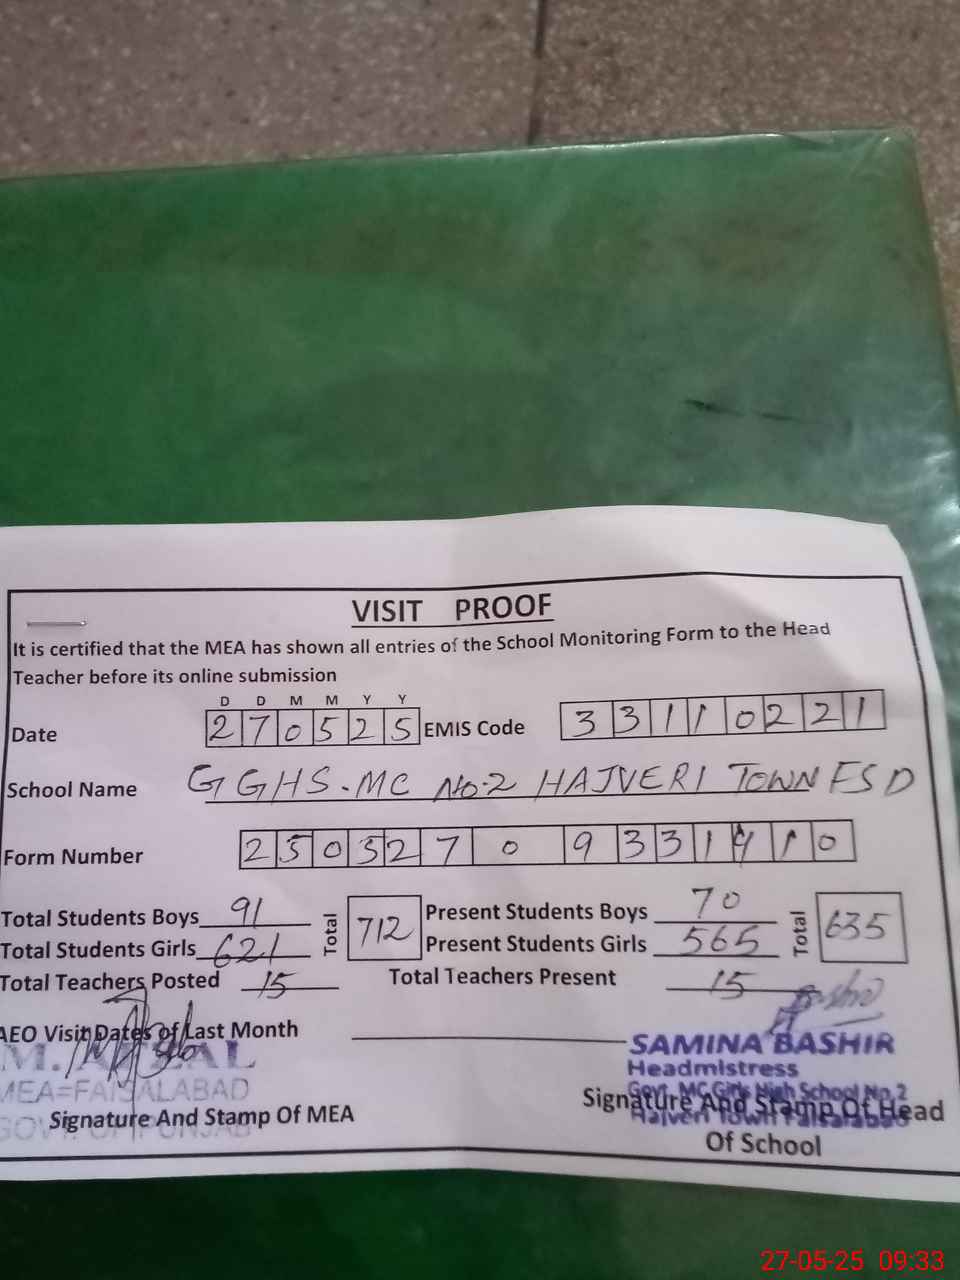 VISIT PROOF
It is certified that the MEA has shown all entries of the School Monitoring Form to the Head
Teacher before its online submission
D D M M Y Y
Date 2 7 0 5 2 5 EMIS Code 3 3 1 1 0 2 2 1
School Name G GHS. MC No-2 HAJVERI TOWN FSD
Form Number 2 5 0 5 2 7 0 9 3 3 1 1 0
Total Students Boys 91 Total 712 Present Students Boys 70 Total 635
Total Students Girls 621 Present Students Girls 565
Total Teachers Posted 15 Total Teachers Present 15
AEO Visit Dates of Last Month
M. AFZAL
MEA=FAISALABAD
GOVT. OF PUNJAB
Signature And Stamp Of MEA
SAMINA BASHIR
Headmistress
Govt. MC Girls High School No. 2
Hajveri Town Faisalabad
Signature And Stamp Of Head
Of School
27-05-25 09:33